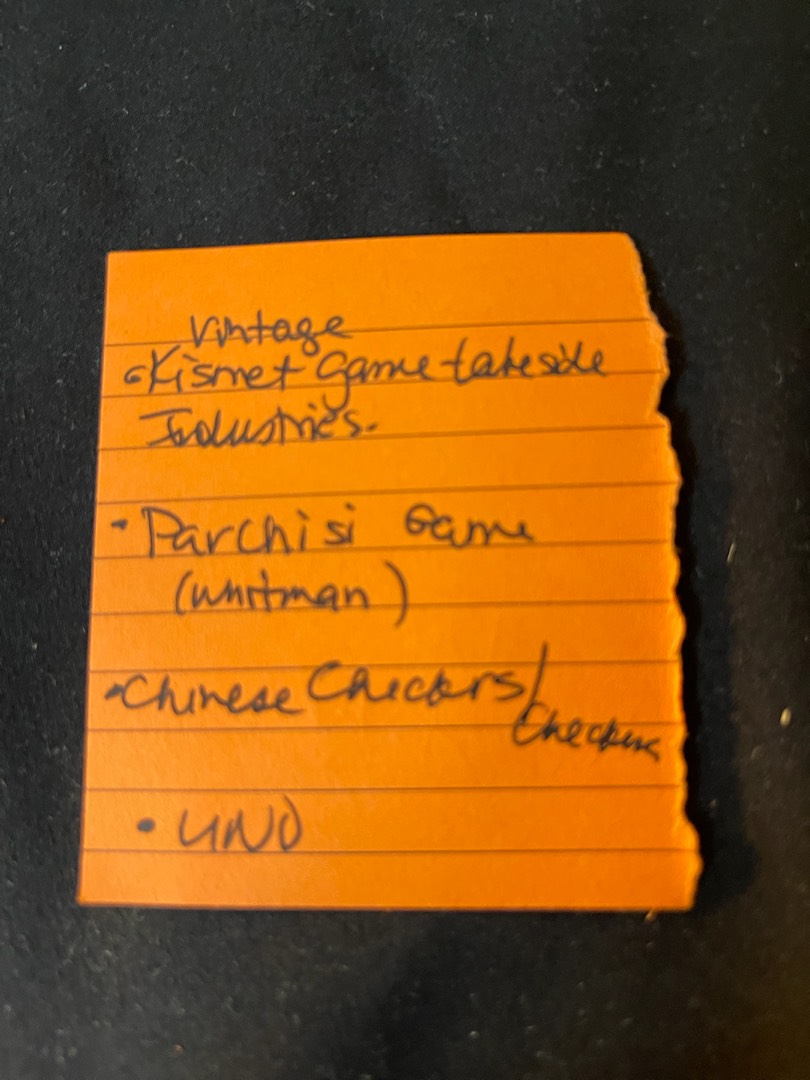 Vintage
• Kismet Game Lakeside
Industries.
• Parchisi Game
(Whitman)
• Chinese Checkers/
Checkers
• UNO